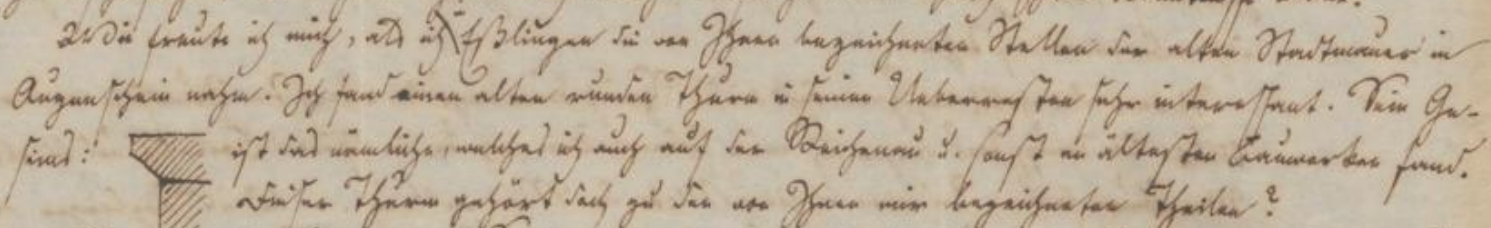 Wie freute ich mich, als ich in Eßlingen die von Ihnen bezeichneten Stellen der alten Stadtmauer in
Augenschein nahm. Ich fand einen alten runden Thurm in seinen Ueberresten sehr interessant. Sein Ge-
sims: ist das nämliche, welches ich auch auf der Reichenau u. sonst an ältesten Bauwerken fand.
Dieser Thurm gehört doch zu den von Ihnen mir bezeichneten Theilen?